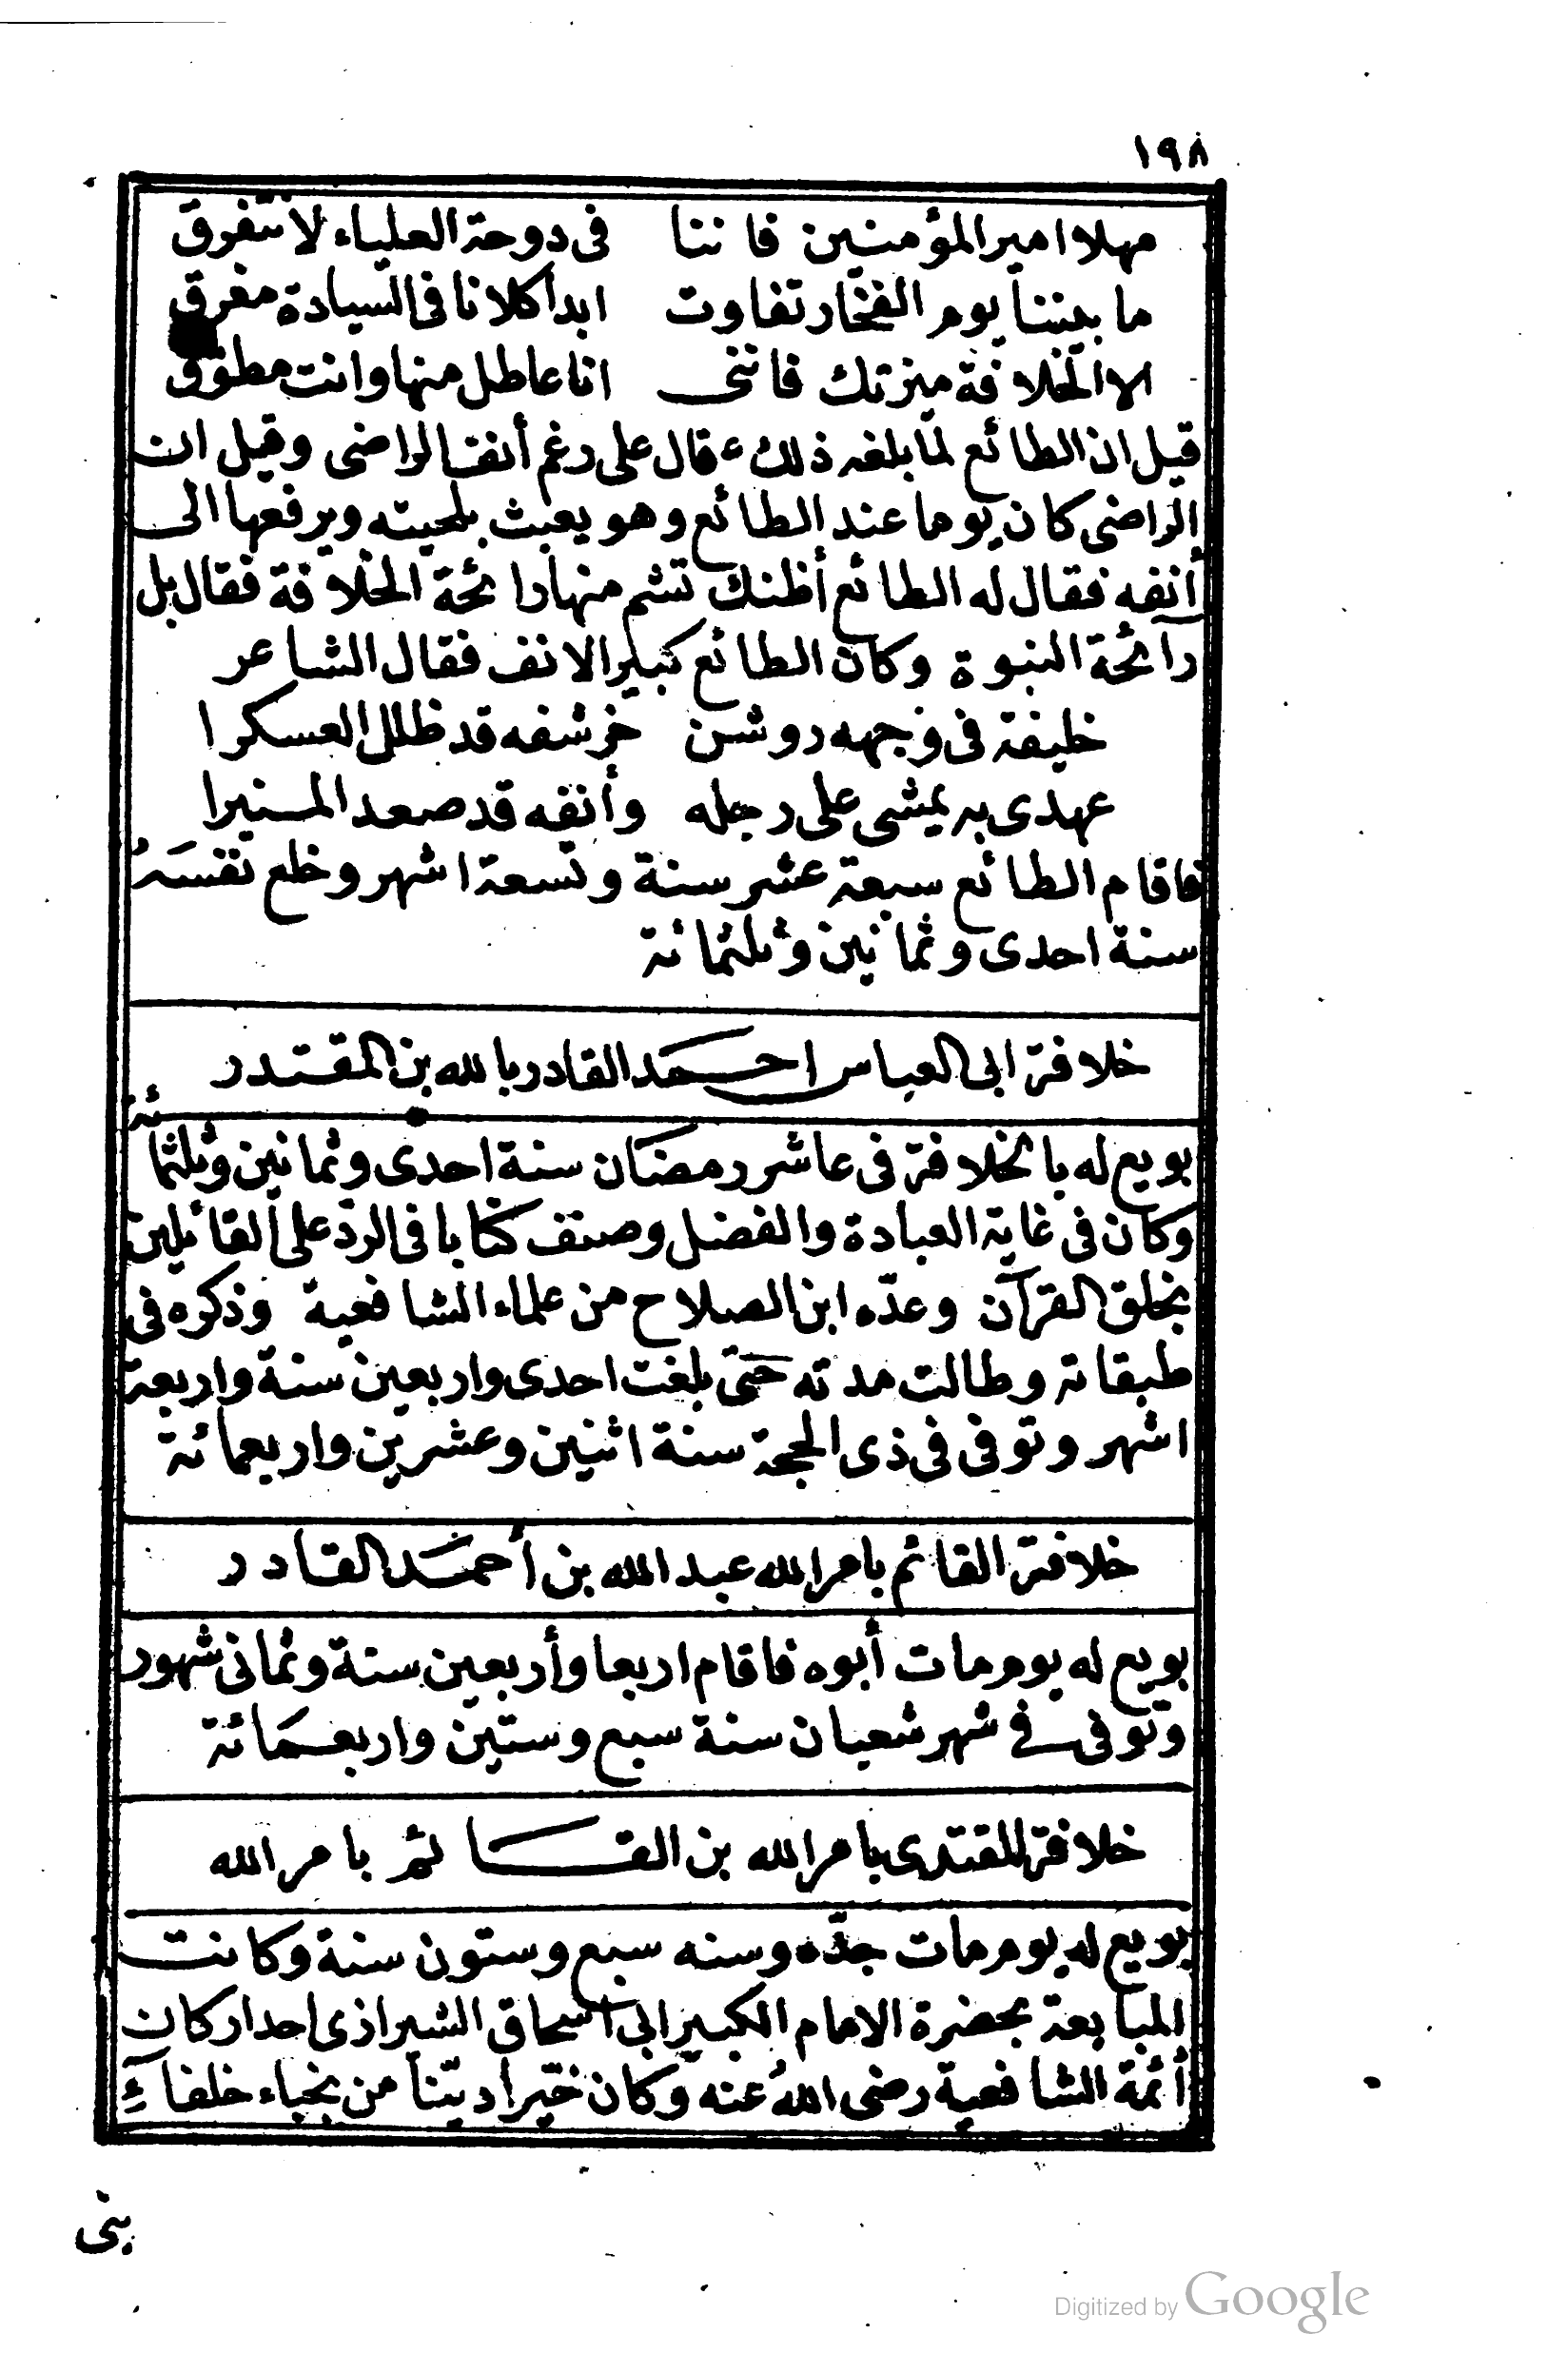 ١٩٨
مهلا امير المؤمنين فاننا في دوحة العلياء لا نتفرق
ما بيننا يوم الفخار تفاوت ابدا كلانا في السيادة مغرق
الا الخلافة ميزتك فانني انا عاطل منها وانت مطوق
قيل ان الطائع لما بلغه ذلك قال على رغم أنف الراضى وقيل ان
الراضى كان يوما عند الطائع وهو يعبث بلحيته ويرفعها الى
أنفه فقال له الطائع أظنك تشم منها رائحة الخلافة فقال بل
رائحة النبوة وكان الطائع كبير الانف فقال الشاعر
خليفة في وجهه روشن خرشفه قد ظلل العسكرا
عهدى به يمشى على رجله وأنفه قد صعد المنبرا
فاقام الطائع سبعة عشر سنة وتسعة اشهر وخلع نفسَهُ
سنة احدى وثمانين وثلثمائة
خلافة ابى العباس احمد القادر بالله بن المقتدر
بويع له بالخلافة فى عاشر رمضان سنة احدى وثمانين وثلثمائة
وكان فى غاية العبادة والفضل وصنف كتابا فى الردّ على القائلين
بخلق القرآن وعدّه ابن الصلاح من علماء الشافعية وذكره فى
طبقاته وطالت مدته حتى بلغت احدى واربعين سنة واربعة
اشهر وتوفى فى ذى الحجة سنة اثنين وعشرين واربعمائة
خلافة القائم بامر الله عبد الله بن أحمد القادر
بويع له يوم مات أبوه فاقام اربعا وأربعين سنة وثمانى شهور
وتوفى فى شهر شعبان سنة سبع وستين واربعمائة
خلافة المقتدى بامر الله بن القائم بامر الله
بويع له يوم مات جدّه وسنه سبع وستون سنة وكانت
المبايعة بحضرة الامام الكبير ابى اسحاق الشيرازى احد اركان
أئمة الشافعية رضى اللهُ عنه وكان خيّرا ديّنا من نجباء خلفآءِ
بنى
Digitized by Google